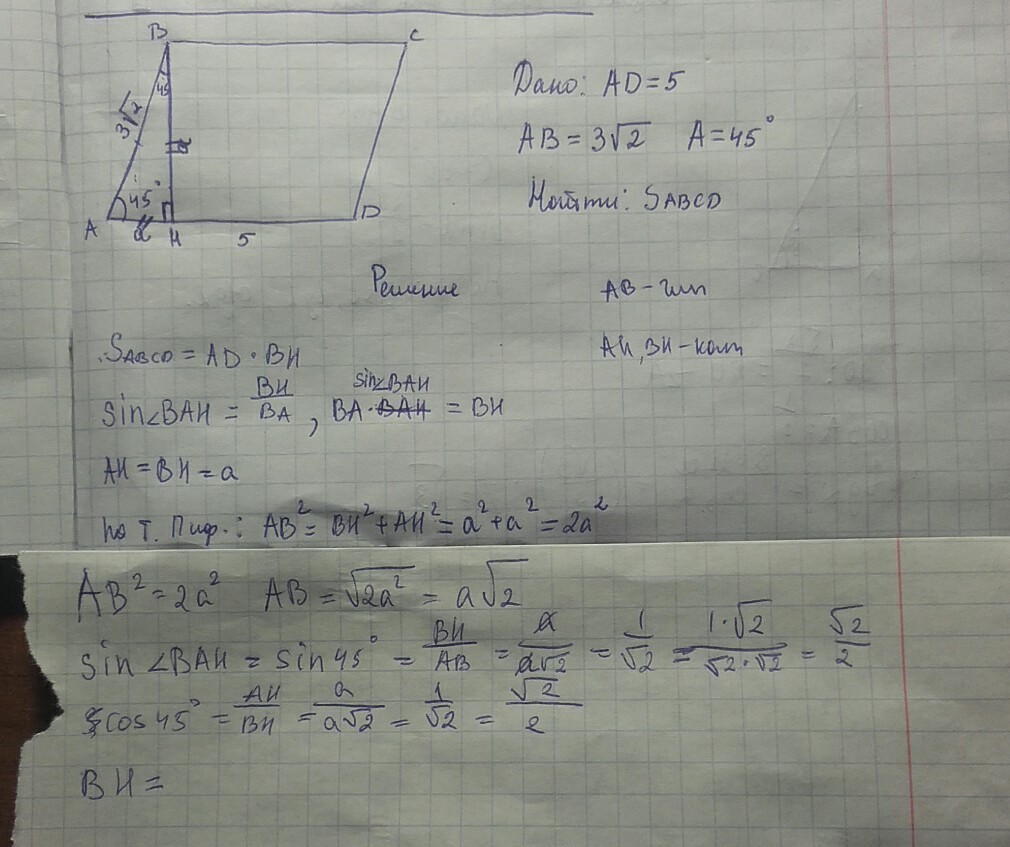 B C
3√2 45 a
45°
A a H 5 D
Дано: AD=5
AB=3√2 A=45°
Найти: SABCD
Решение
AB-гип
AH, BH-кат
SABCD = AD · BH
sin∠BAH = BH/BA , BA · sin∠BAH = BH
AH = BH = a
По т. Пиф.: AB² = BH² + AH² = a² + a² = 2a²
AB² = 2a² AB = √2a² = a√2
sin ∠BAH = sin 45° = BH/AB = a/a√2 = 1/√2 = 1·√2/√2·√2 = √2/2
cos 45° = AH/BH = a/a√2 = 1/√2 = √2/2
BH =